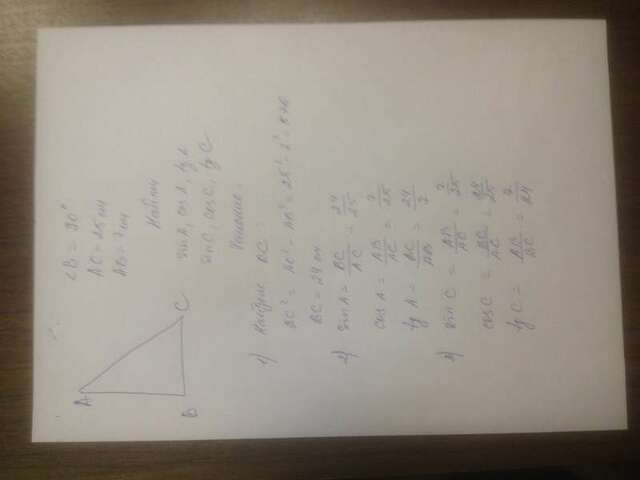 A
B
C
∠B = 90°
AC = 25 см
AB = 7 см
Найти
sin A, cos A, tg A
sin C, cos C, tg C
Решение:
1) Найдем BC:
BC² = AC² - AB² = 25² - 7² = 576
BC = 24 см
2) sin A = BC/AC = 24/25
cos A = AB/AC = 7/25
tg A = BC/AB = 24/7
3) sin C = AB/AC = 7/25
cos C = BC/AC = 24/25
tg C = AB/BC = 7/24